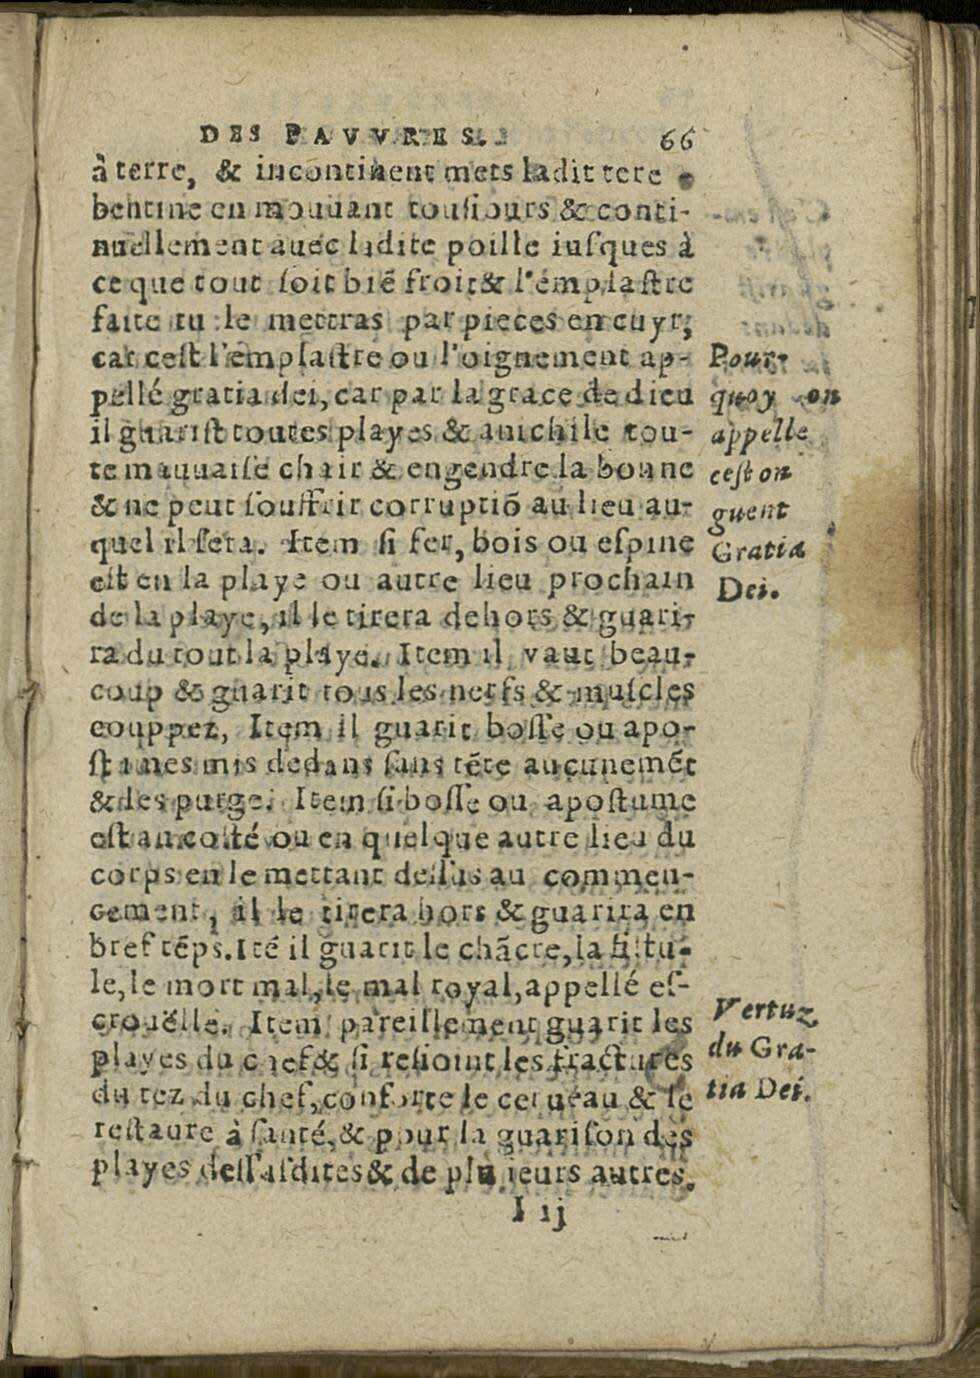 DES PAVVRES. 66
à terre, & incontinent mets ladit tere
bentine en mouuant tousiours & conti-
nuellement auec ladite poille iuſques à
ce que tout ſoit biē froit & l'emplaſtre
faite tu le mettras par pieces en cuyr,
car ceſt l'emplaſtre ou l'oignement ap-
pellé gratia dei, car par la grace de dieu
il guariſt toutes playes & anichile tou-
te mauuaiſe chair & engendre la bonne
& ne peut ſouffrir corruptiō au lieu au-
quel il ſera. Item ſi fer, bois ou eſpine
eſt en la playe ou autre lieu prochain
de la playe, il le tirera dehors & guari-
ra du tout la playe. Item il vaut beau-
coup & guarit tous les nerfs & muſcles
couppez, Item il guarit boſſe ou apo-
ſtumes mis dedans ſans tēte aucunemēt
& les purge. Item ſi boſſe ou apoſtume
eſt au coſté ou en quelque autre lieu du
corps en le mettant deſſus au commen-
cement, il le tirera hors & guarira en
bref tēps. Itē il guarit le chācre, la fiſtu-
le, le mort mal, le mal royal, appellé eſ-
crouëlle. Item pareillement guarit les
playes du chef & ſi reſioint les fractures
du tez du chef, conforte le cerueau & le
reſtaure à ſanté, & pour la guariſon des
playes deſſuſdites & de pluſieurs autres.
I ij
Pour-
quoy on
appelle
ceſt on
guent
Gratia
Dei.
Vertuz
du Gra-
tia Dei.